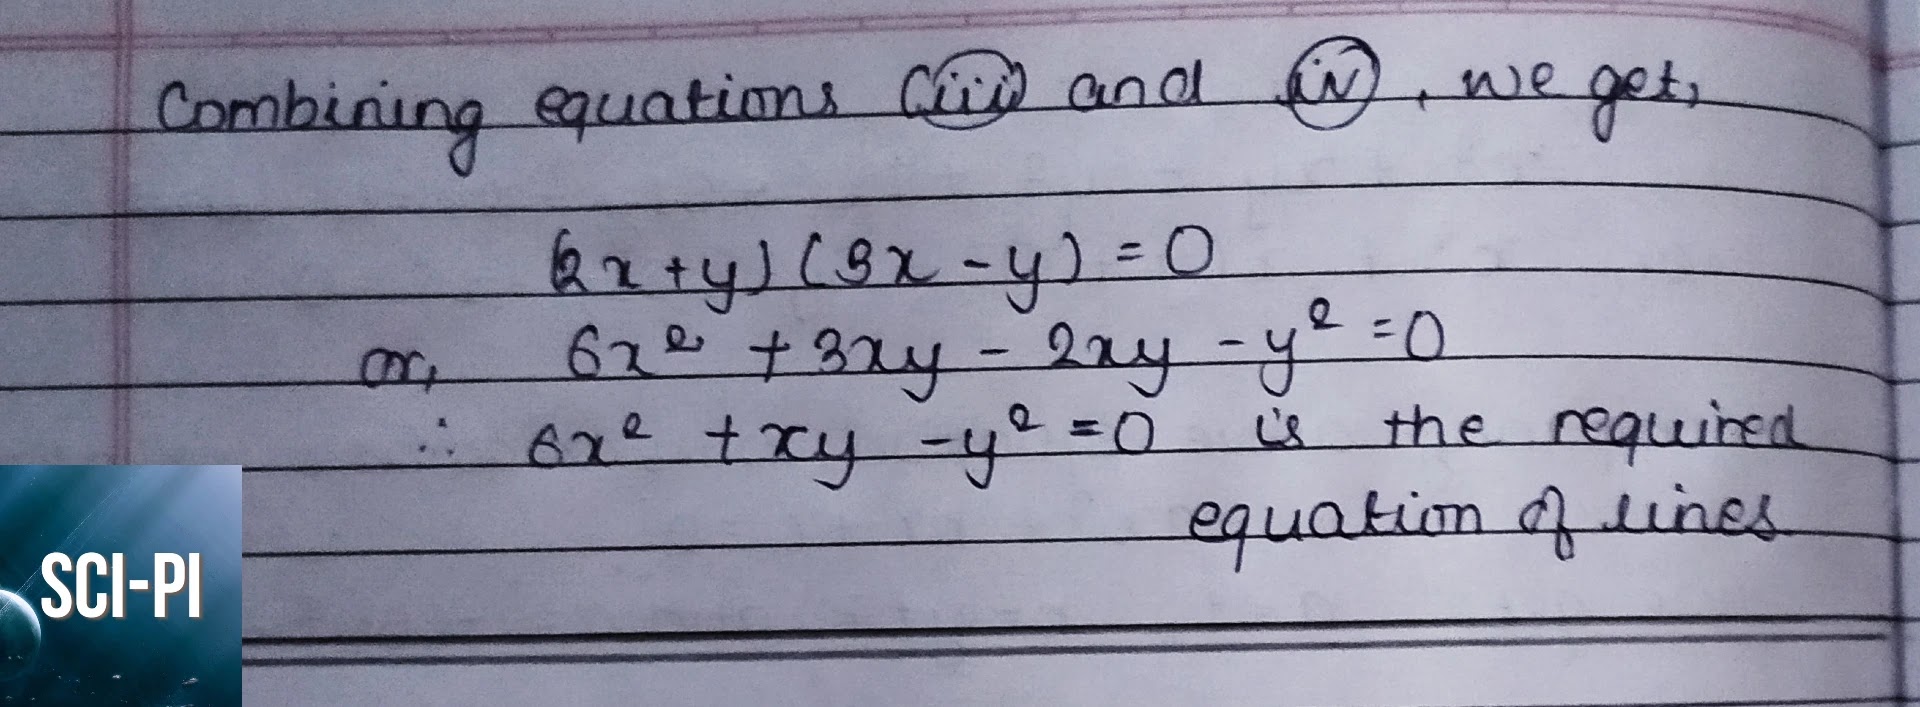 Combining equations (iii) and (iv), we get,
(2x+y)(3x-y)=0
or, 6x² +3xy - 2xy -y² =0
∴ 6x² +xy -y² =0 is the required
equation of lines
SCI-PI